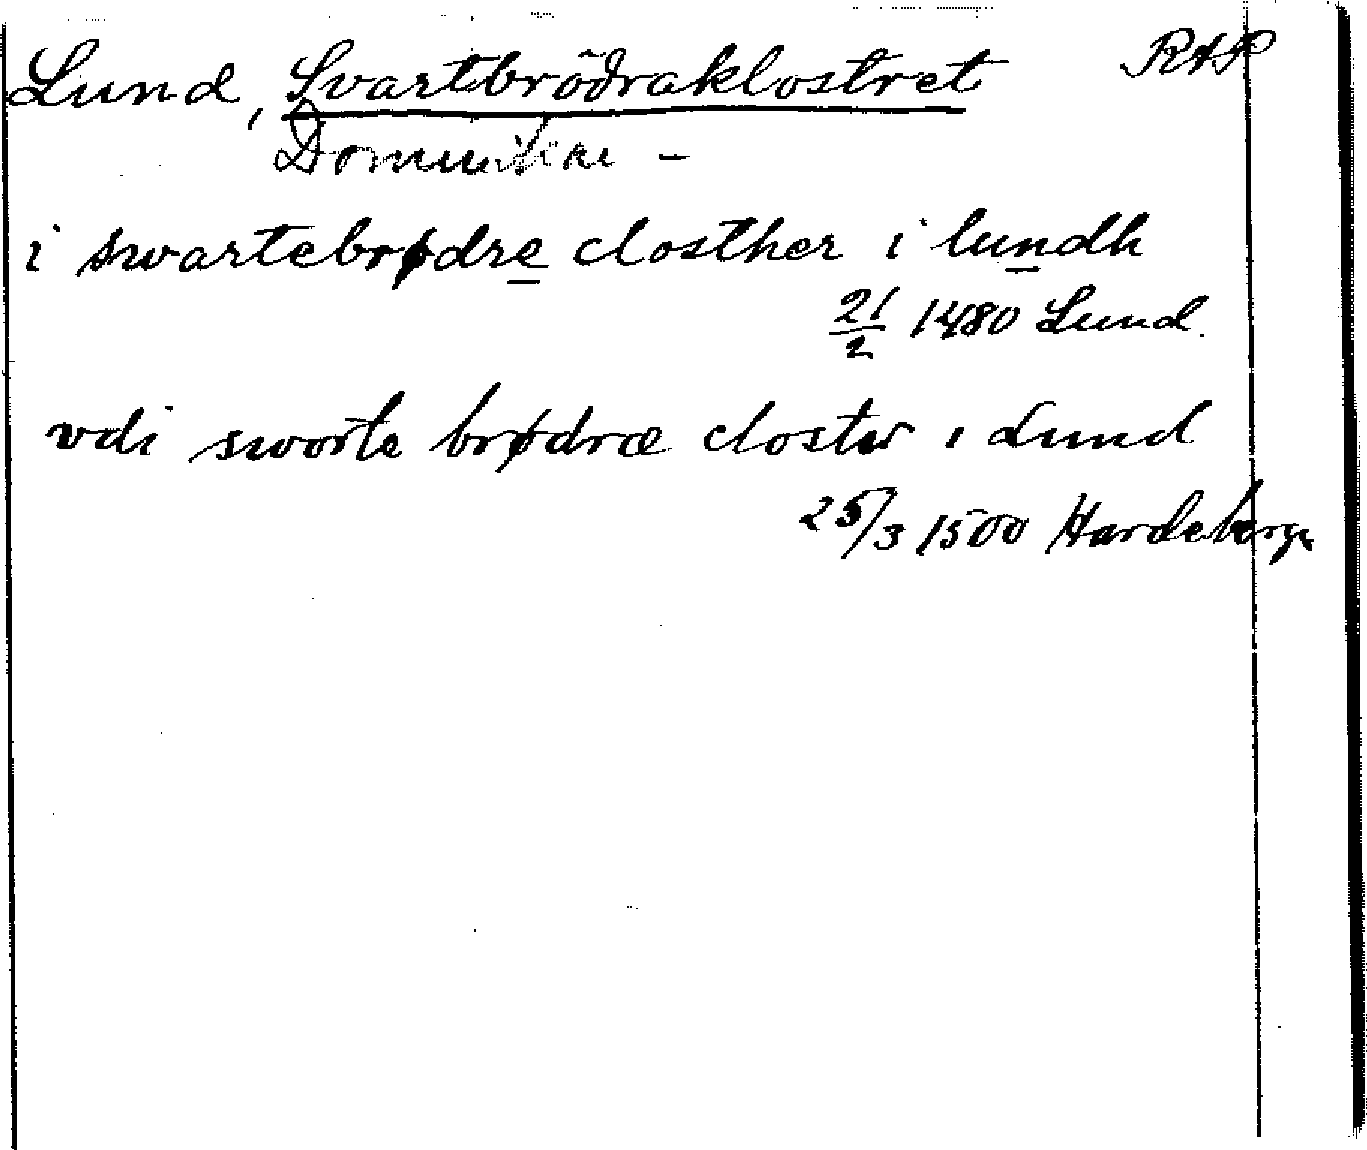 Lund, Svartbrödraklostret RAP
Dominikan -
i swartebrødre closther i lundh
21/2 1480 Lund.
vdi sworte brødræ closter i Lund
25/3 1500 Hardeberga